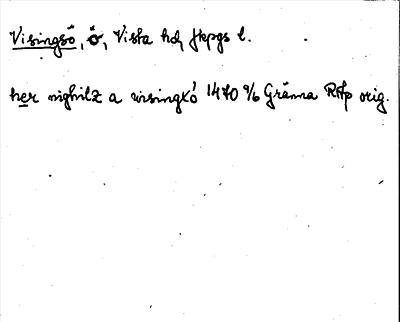 Visingsö, ö, Vista hd, Jkpgs l.
her nighilz a wisingxó 1470 % Gränna RAp orig.